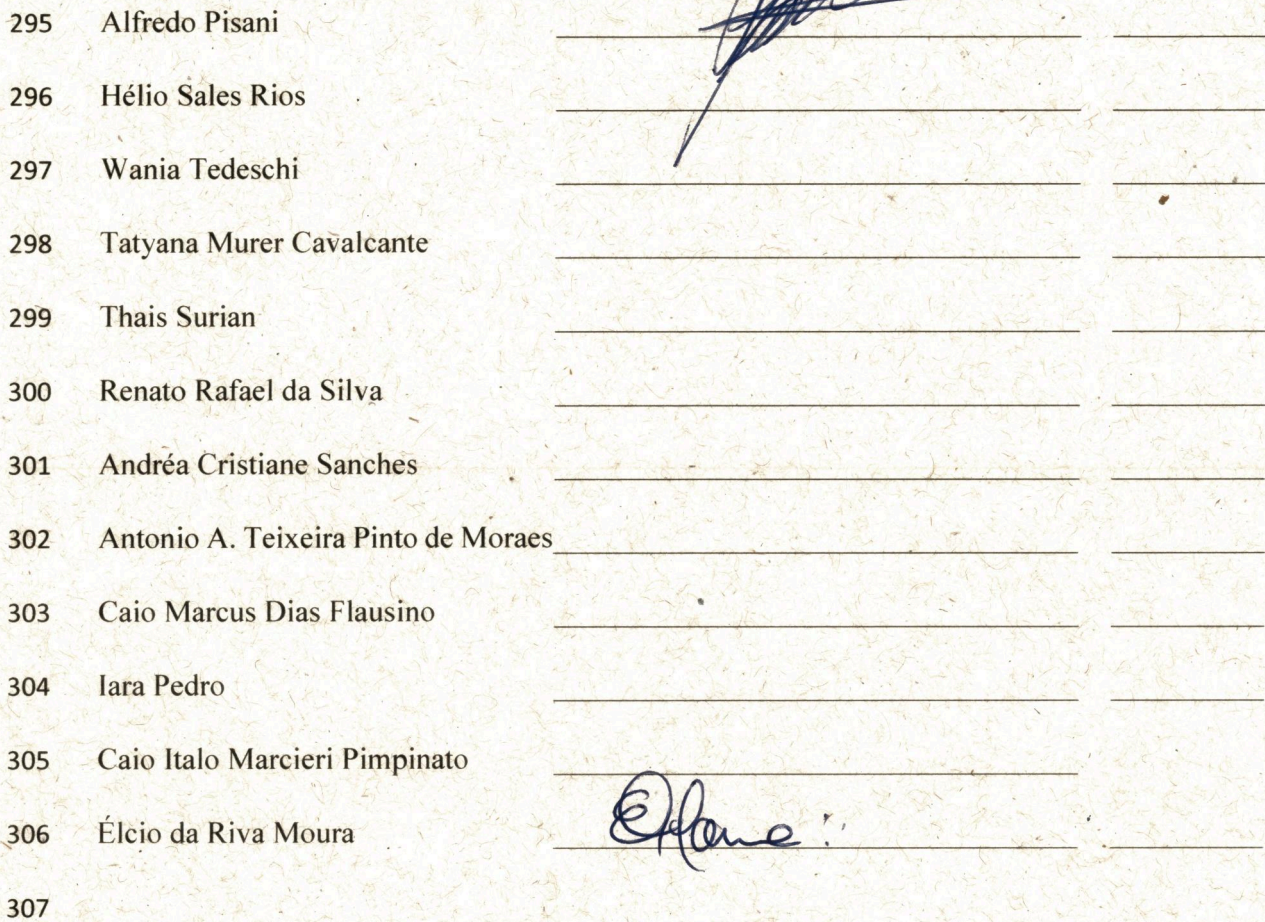 295 Alfredo Pisani
296 Hélio Sales Rios
297 Wania Tedeschi
298 Tatyana Murer Cavalcante
299 Thais Surian
300 Renato Rafael da Silva
301 Andréa Cristiane Sanches
302 Antonio A. Teixeira Pinto de Moraes
303 Caio Marcus Dias Flausino
304 Iara Pedro
305 Caio Italo Marcieri Pimpinato
306 Élcio da Riva Moura
307